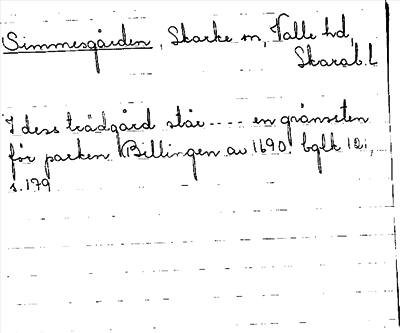 Simmesgården, Skarke sn, Valle hd,
Skarab. L
I dess trädgård står .... en gränssten
för parken Billingen av 1690. bglk 12:1,
s. 179